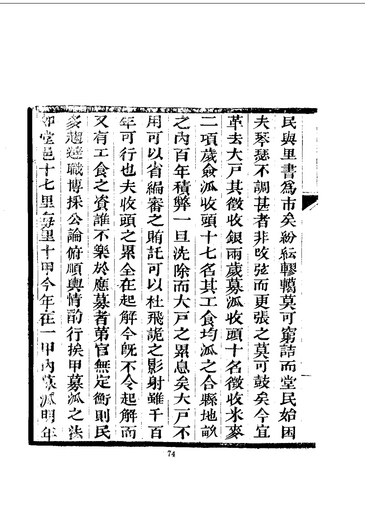 民與里書爲市矣紛紜轇轕莫可窮詰而堂民始困
夫琴瑟不調甚者非咬弦而更張之莫可鼓矣今宜
革去大戸其徴收銀兩歲募派收頭十名徴收米麥
二項歲僉派收頭十七名其工食均派之合縣地畝
之內百年積弊一旦洗除而大戸之累息矣大戸不
用可以省編審之賄託可以杜飛詭之影射雖千百
年可行也夫收頭之累全在起解今旣不令起解而
又有工食之資誰不樂於應募者第官無定衡則民
多趨避職博採公論俯順輿情酌行挨甲募派之法
堂邑十七里每里十甲今年在一甲內募派明年
74